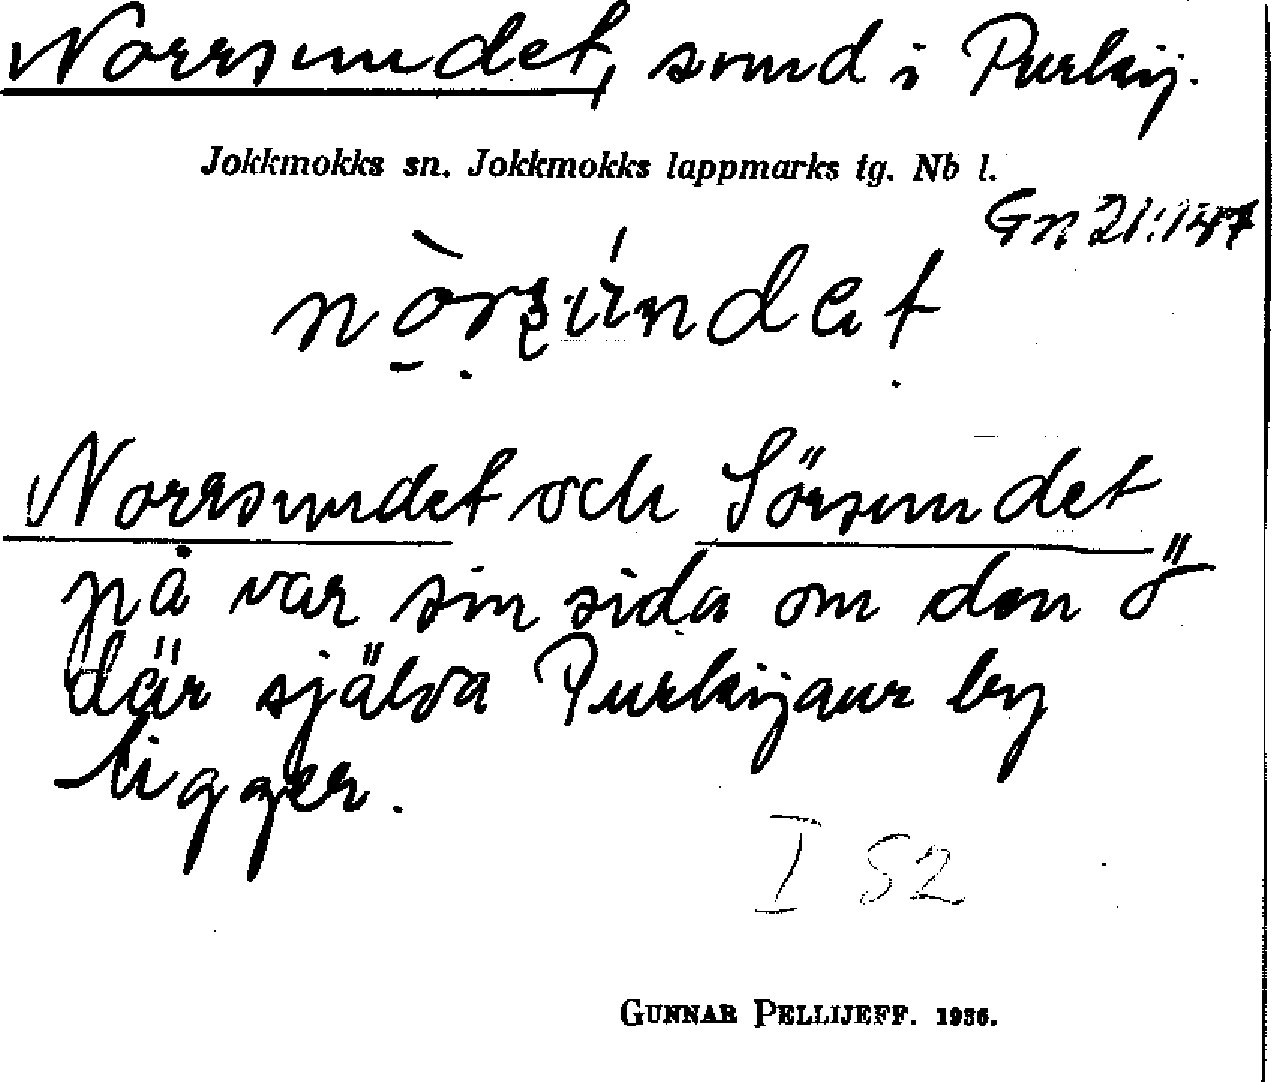 Norrsundet, sund i Purkij.
Jokkmokks sn. Jokkmokks lappmarks tg. Nb l.
Gn 21:147
Norrsundet och Sörsundet
på var sin sida om den ö
där själva Purkijaur by
ligger.
I S2
GUNNAR PELLIJEFF. 1936.